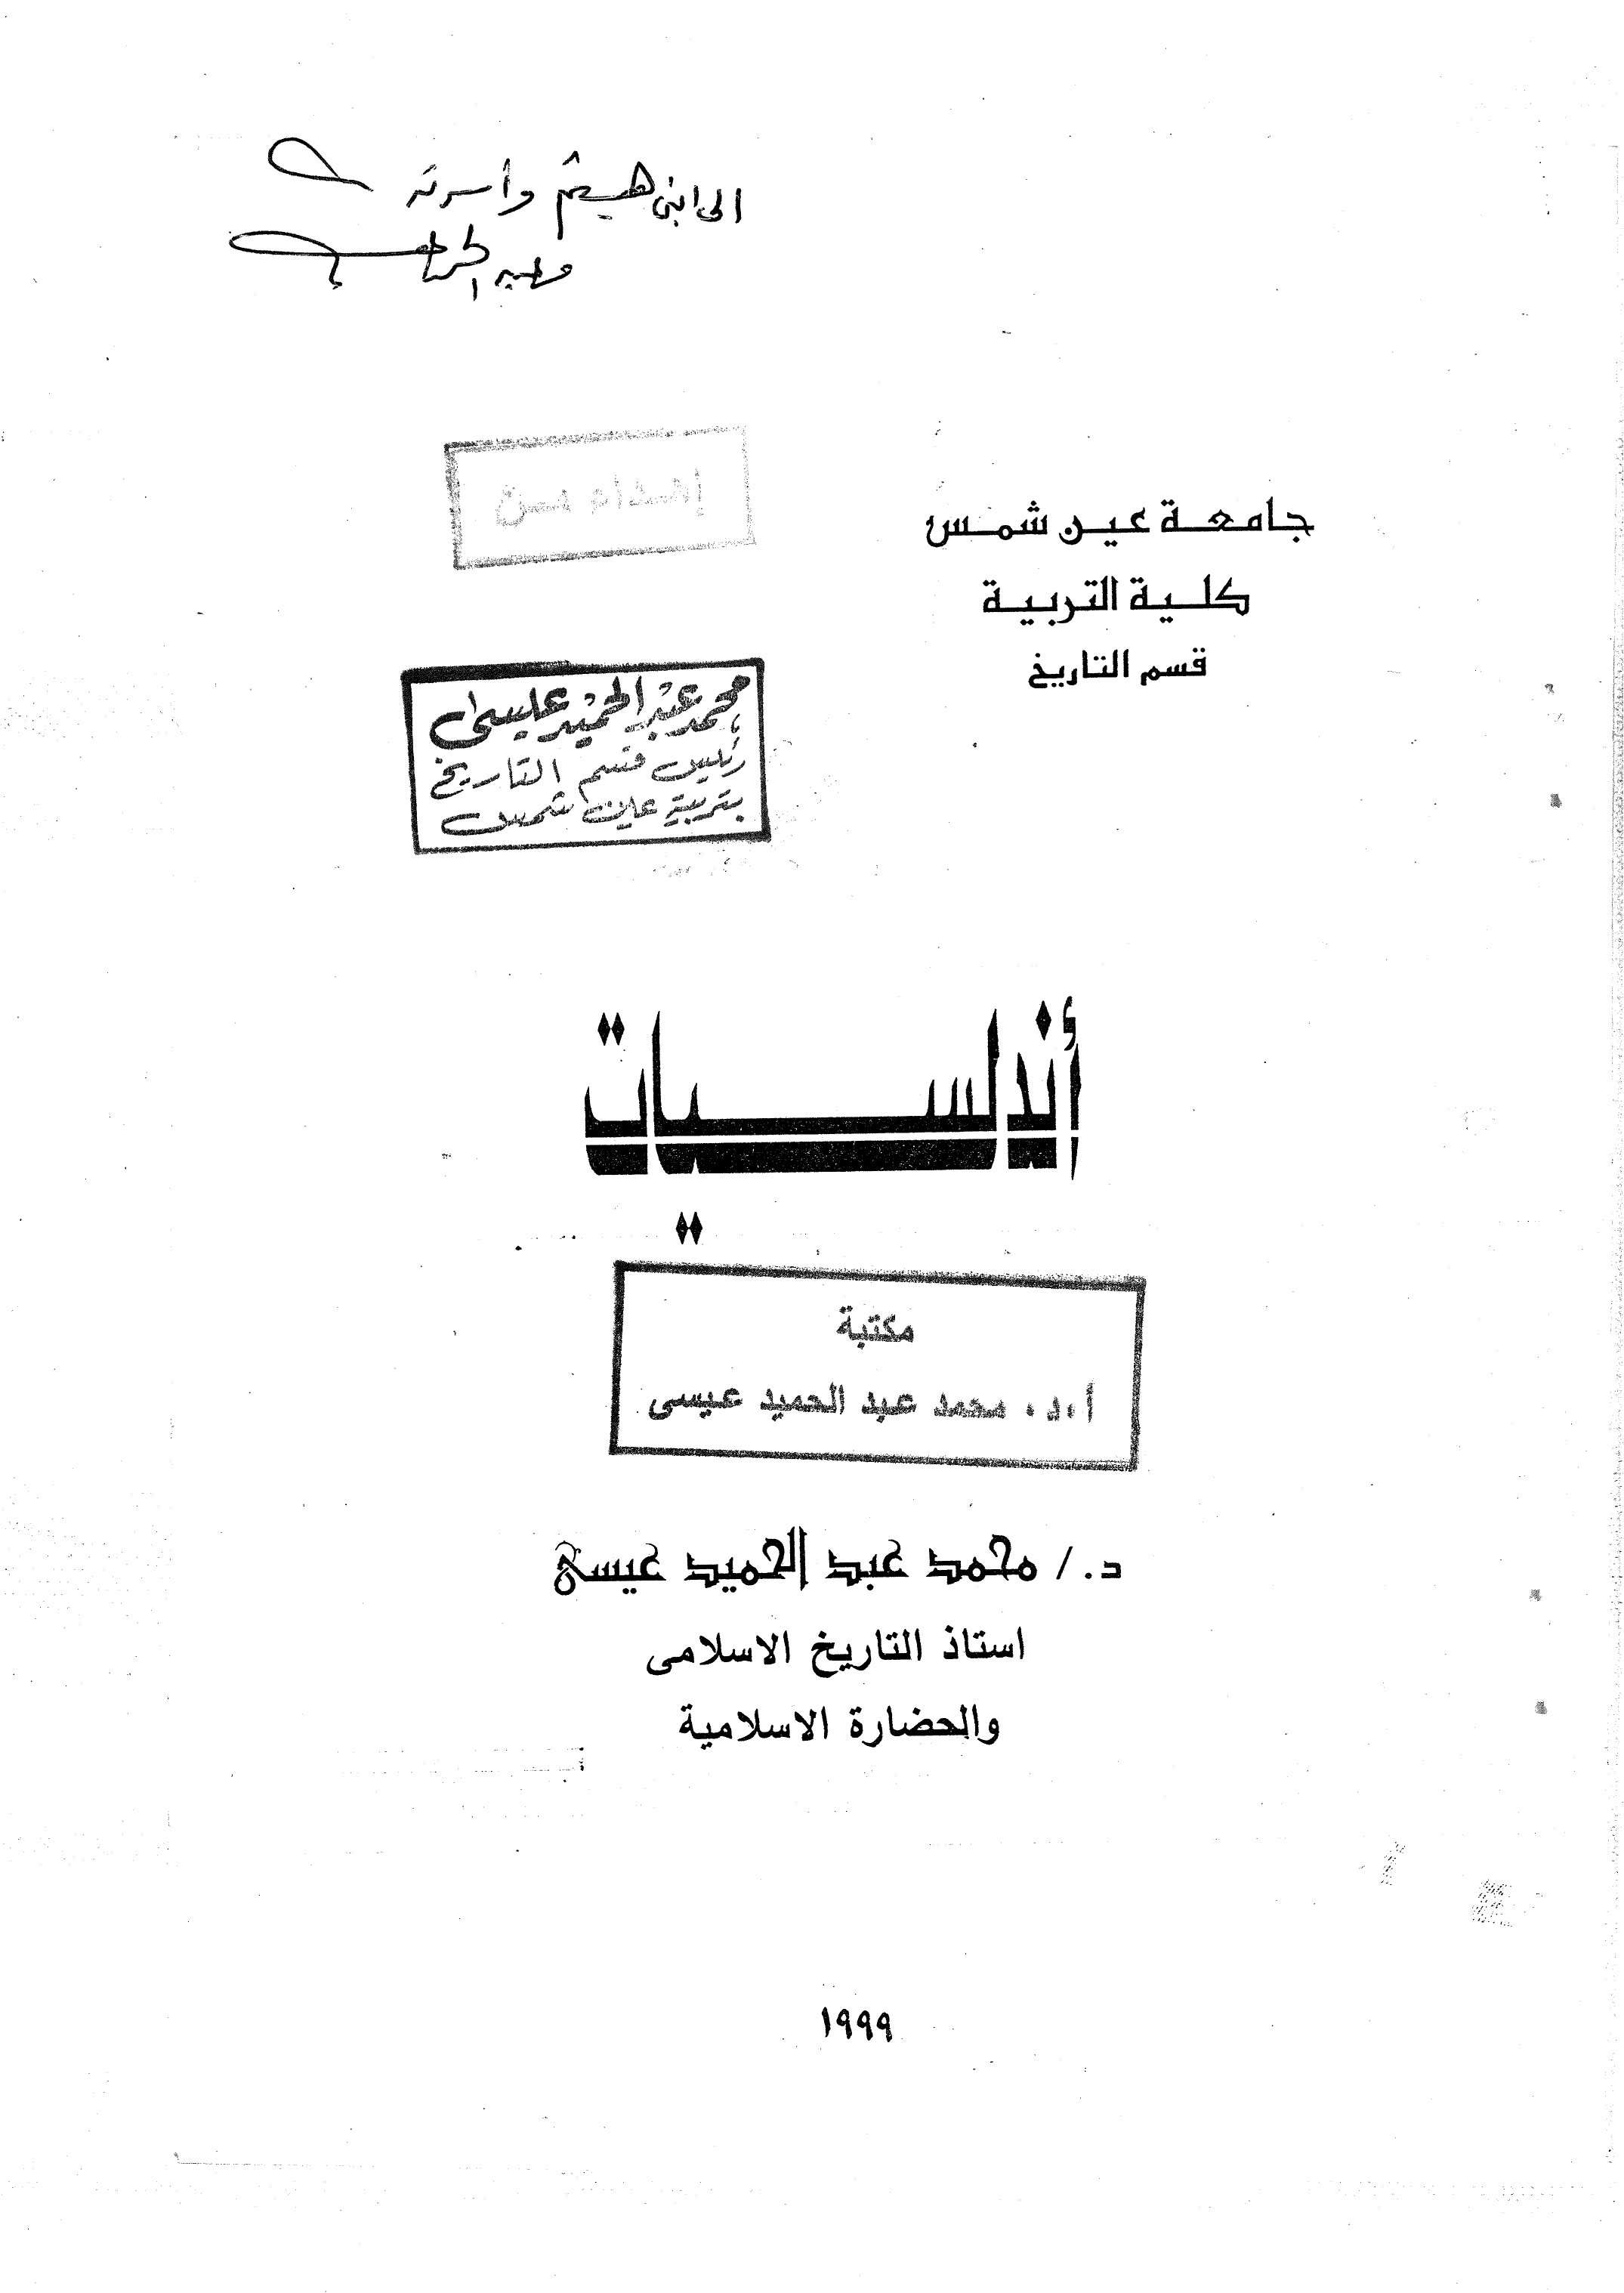 الى ابنى هيثم وأسرته
جامعة عين شمس
كلية التربية
قسم التاريخ
إهداء من
محمد عبد الحميد عيسى
رئيس قسم التاريخ
بتربية عين شمس
أندلسيات
مكتبة
أ.د. محمد عبد الحميد عيسى
د. / محمد عبد الحميد عيسى
استاذ التاريخ الاسلامى
والحضارة الاسلامية
١٩٩٩